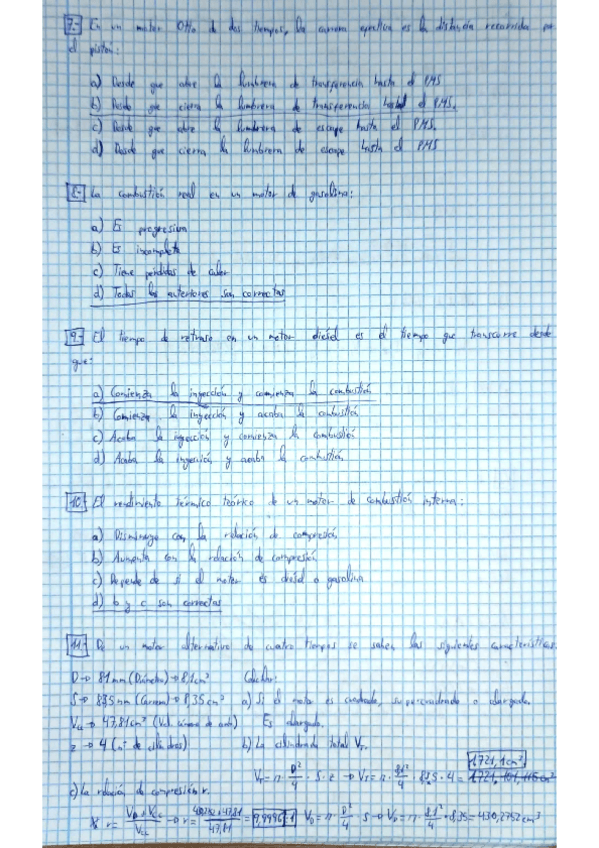 7.- En un motor Otto de dos tiempos, la carrera efectiva es la distancia recorrida por
el pistón:
a) Desde que abre la lumbrera de transferencia hasta el PMS
b) Desde que cierra la lumbrera de transferencia hasta el PMS.
c) Desde que abre la lumbrera de escape hasta el PMS.
d) Desde que cierra la lumbrera de escape hasta el PMS
8.- La combustión real en un motor de gasolina:
a) Es progresiva
b) Es incompleta
c) Tiene perdidas de calor
d) Todas las anteriores son correctas
9.- El tiempo de retraso en un motor diésel es el tiempo que transcurre desde
que:
a) Comienza la inyección y comienza la combustión
b) Comienza la inyección y acaba la combustión
c) Acaba la inyección y comienza la combustión
d) Acaba la inyección y acaba la combustión
10.- El rendimiento térmico teórico de un motor de combustión interna:
a) Disminuye con la relación de compresión
b) Aumenta con la relación de compresión
c) Depende de si el motor es diésel o gasolina
d) b y c son correctas
11.- De un motor alternativo de cuatro tiempos se saben las siguientes características:
D→ 81mm (Diámetro)→8,1cm² Calcular:
S→ 83,5mm (Carrera)→8,35cm² a) Si el motor es cuadrado, supercuadrado o alargado.
Vcc→ 47,81cm³ Es alargado.
z→ 4 (nº de cilindros) b) La cilindrada total VT.
1721,1cm³
VT= π · D²/4 · S · z → VT= π · 8,1²/4 · 8,35 · 4 =
c) La relación de compresión r.
r= VD+Vcc/Vcc → r= 430,2752+47,81/47,81 = 9,9996:1 VD= π · D²/4 · S → VD= π · 8,1²/4 · 8,35= 430,2752cm³